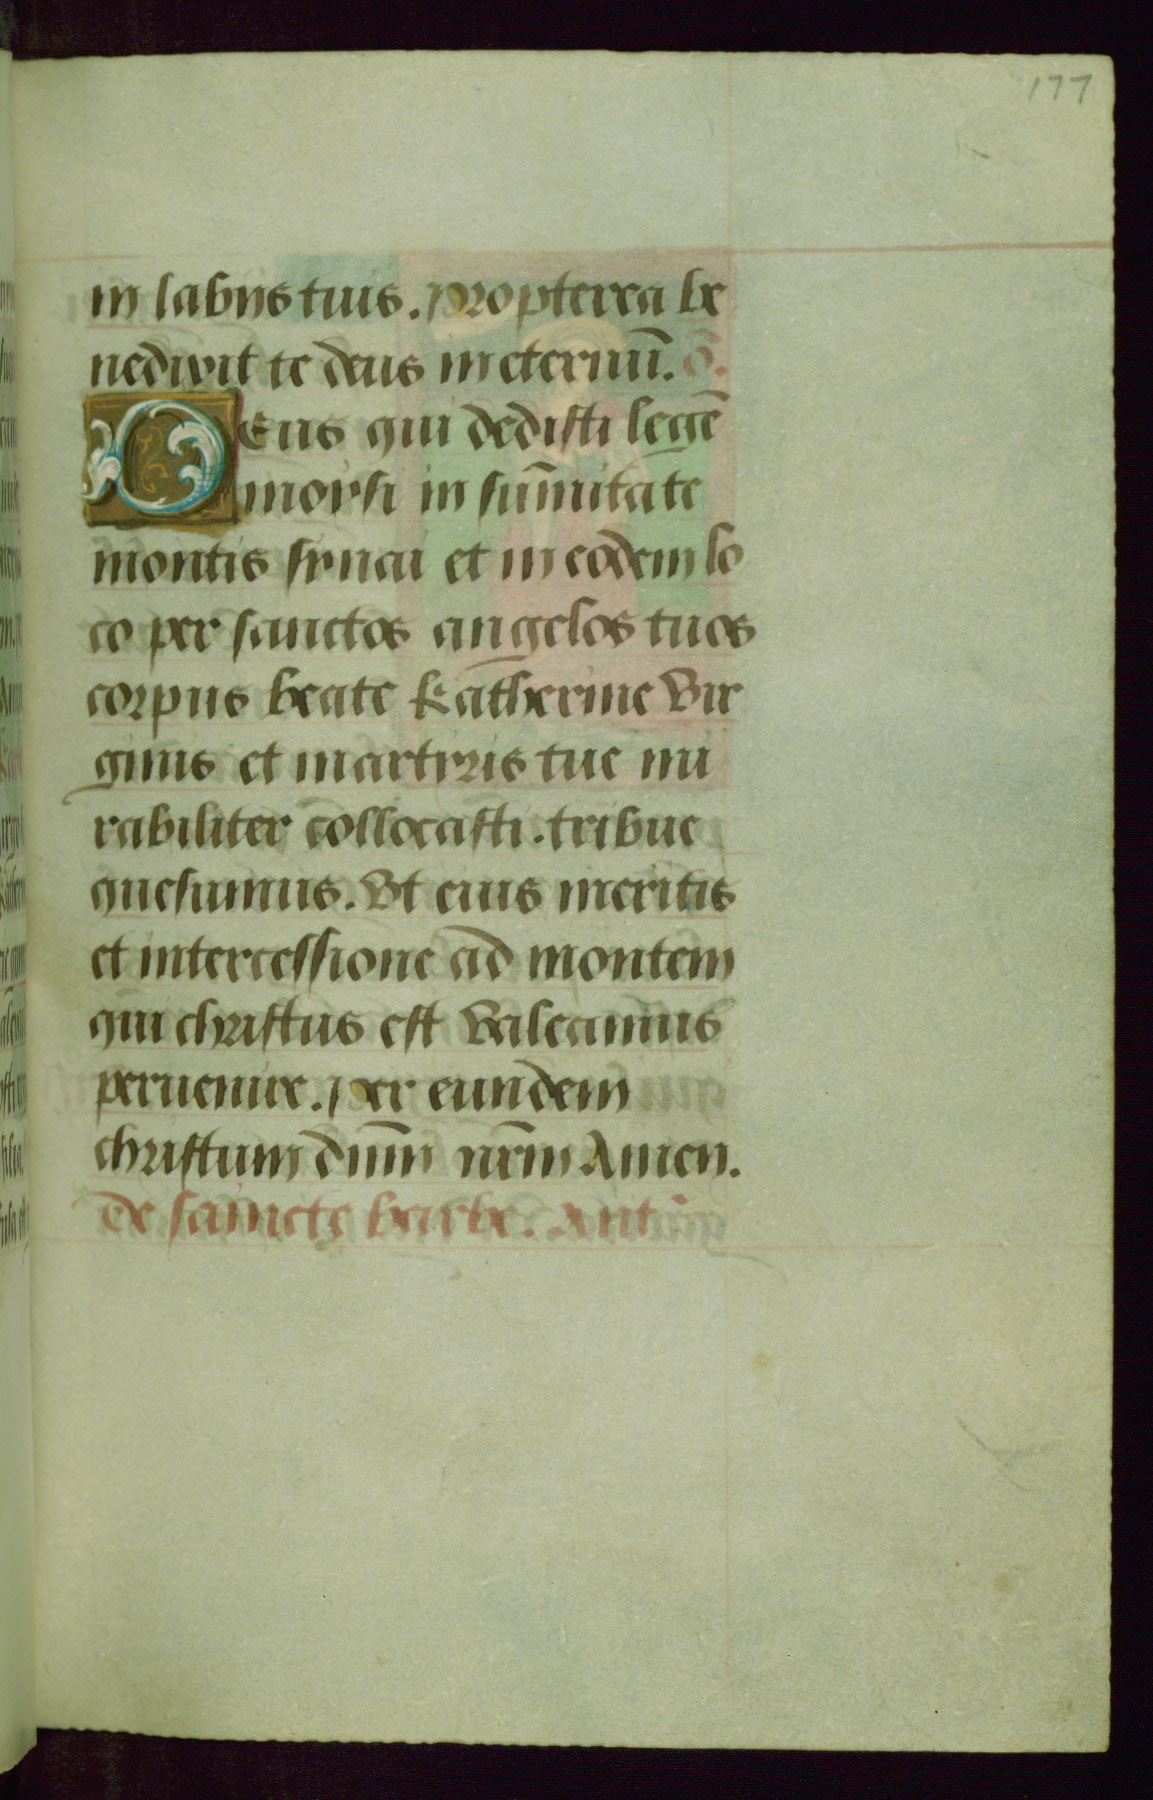 177
in labijs tuis. Propterea be
nedixit te deus in eternū. õ.
Deus qui dedisti legē
moysi in sūmitate
montis synai et in eodem lo
co per sanctos angelos tuos
corpus beate katherine vir
ginis et martyris tue mi
rabiliter collocasti. tribue
quesumus. Vt eius meritis
et intercessione ad montem
qui christus est valeamus
peruenire. Per eundem
christum dn̄m nr̄m Amen.
De saincte barbe. Ant᷑